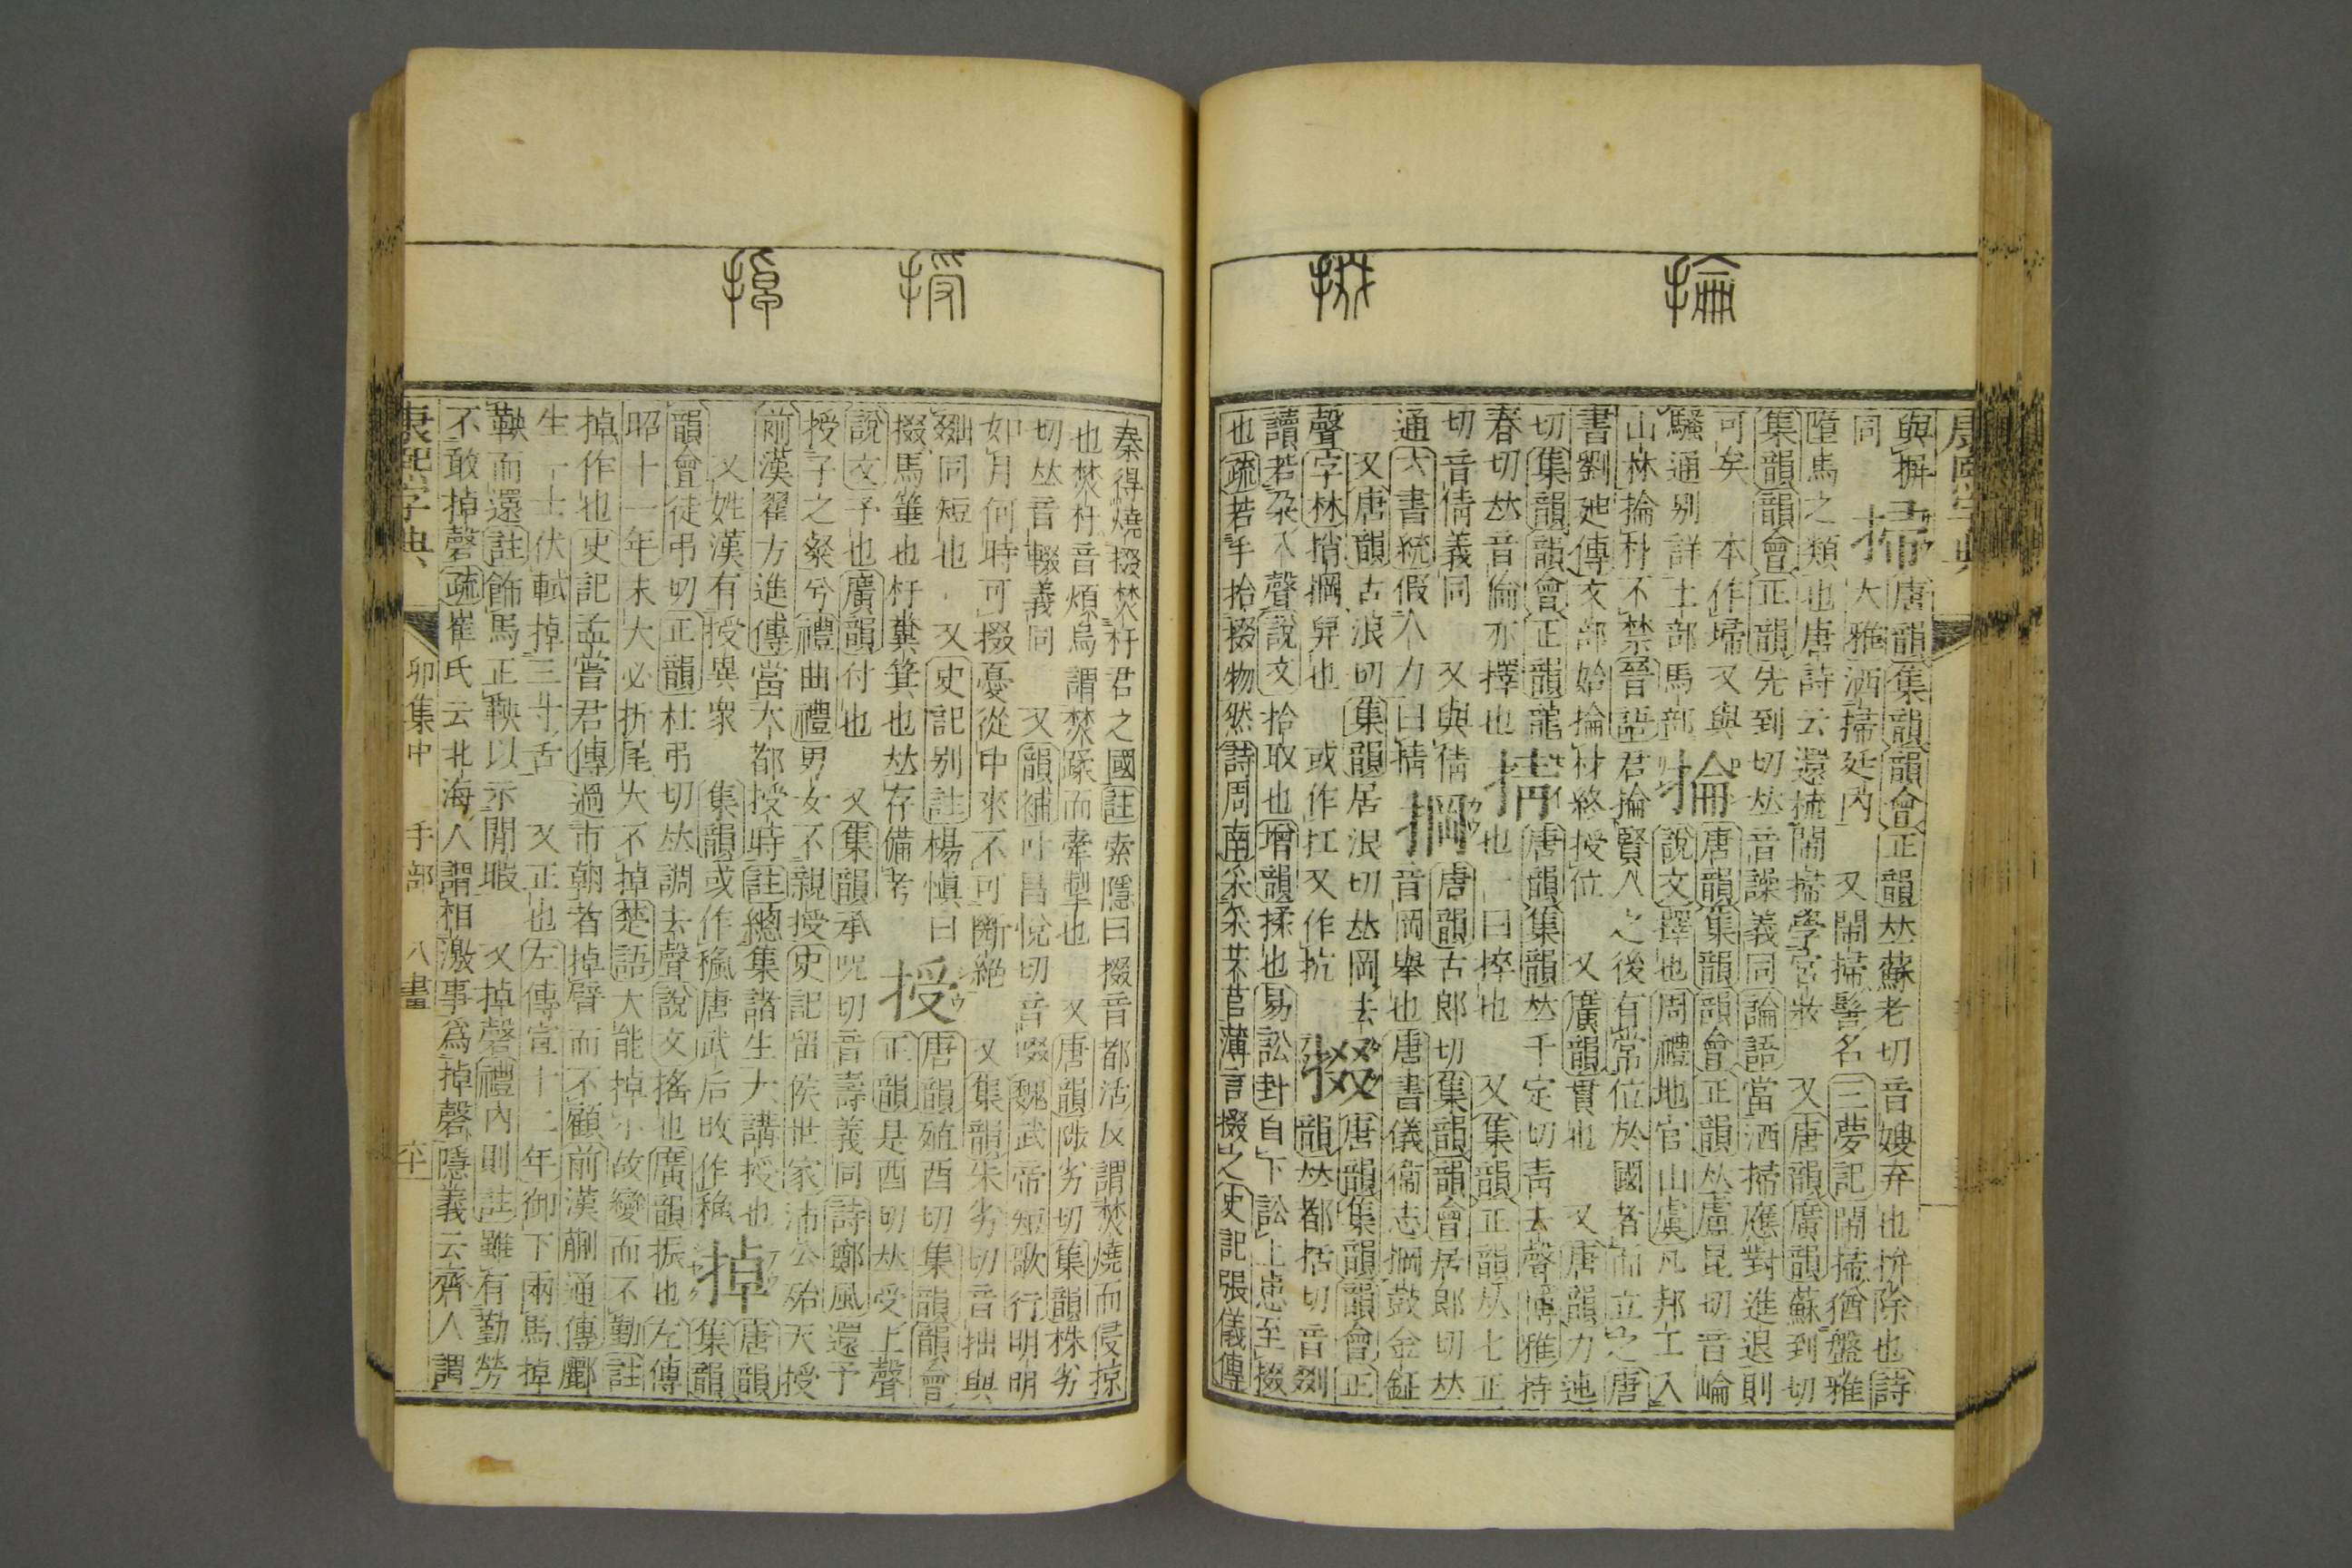 掄
掇
康熙字典
與摒
同
掃
唐韻集韻韻會正韻𠀤蘇老切音嫂弃也拚除也詩
大雅洒掃廷內 又鬧掃髻名三夢記鬧掃猶盤雅
墮馬之類也唐詩云還梳鬧掃學宮妝 又唐韻廣韻蘇到切
集韻韻會正韻先到切𠀤音譟義同論語當洒掃應對進退則
可矣 本作埽又與
騷通別詳土部馬部
掄
唐韻集韻韻會正韻𠀤盧昆切音崘
說文擇也周禮地官山虞凡邦工入
山林掄材不禁晉語君掄賢人之後有常位於國者而立之唐
書劉迺傳文部始掄材終授位 又廣韻貫也 又唐韻力迍
切集韻韻會正韻龍
春切𠀤音倫亦擇也
掅
唐韻集韻𠀤千定切靑去聲博雅持
也一曰捽也 又集韻正韻𠀤七正
切音倩義同 又與倩
通六書統假人力曰掅
掆
唐韻古郎切集韻韻會居郎切𠀤
音岡舉也唐書儀衞志掆鼓金鉦
又唐韻古浪切集韻居浪切𠀤岡去
聲字林捎掆舁也 或作扛又作抗
掇
唐韻集韻韻會正
韻𠀤都括切音剟
讀若朶入聲說文拾取也增韻採也易訟卦自下訟上患至掇
也疏若手拾掇物然詩周南采采芣苢薄言掇之史記張儀傳
授
掉
秦得燒掇焚杅君之國註索隱曰掇音都活反謂焚燒而侵掠
也焚杅音煩烏謂焚蹂而牽掣也 又唐韻陟劣切集韻株劣
切𠀤音輟義同 又韻補叶昌悅切音啜魏武帝短歌行明明
如月何時可掇憂從中來不可斷絕 又集韻朱劣切音拙與
㔍同短也 又史記別註楊愼曰
掇馬箠也杅糞箕也𠀤存備考
授
唐韻殖酉切集韻韻會
正韻是酉切𠀤受上聲
說文予也廣韻付也 又集韻承呪切音壽義同詩鄭風還予
授子之粲兮禮曲禮男女不親授史記留侯世家沛公殆天授
前漢翟方進傳當大都授時註總集諸生大講授也
又姓漢有授異眾 集韻或作穐唐武后改作稱
掉
唐韻
集韻
韻會徒弔切正韻杜弔切𠀤調去聲說文搖也廣韻振也左傳
昭十一年末大必折尾大不掉楚語大能掉小故變而不勤註
掉作也史記孟嘗君傳過市朝者掉臂而不顧前漢蒯通傳酈
生一士伏軾掉三寸舌 又正也左傳宣十二年御下兩馬掉
鞅而還註飾馬正鞅以示閒暇 又掉磬禮內則註雖有勤勞
不敢掉磬疏崔氏云北海人謂相激事爲掉磬隱義云齊人謂
康熙字典 卯集中 手部 八畫 六十